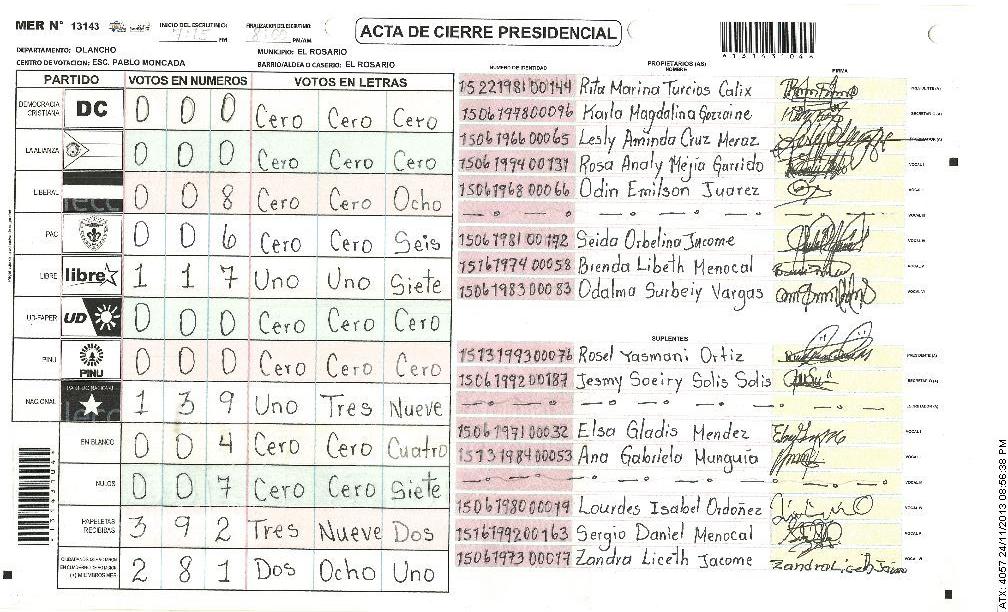 MER N° 13143
INICIO DEL ESCRUTINIO:
PM
FINALIZACION DEL ESCRUTINIO:
PM/AM
ACTA DE CIERRE PRESIDENCIAL
DEPARTAMENTO: OLANCHO
MUNICIPIO: EL ROSARIO
CENTRO DE VOTACION: ESC. PABLO MONCADA
BARRIO/ALDEA O CASERIO: EL ROSARIO
PARTIDO VOTOS EN NUMEROS VOTOS EN LETRAS
DEMOCRACIA CRISTIANA DC 0 0 0 Cero Cero Cero
LA ALIANZA 0 0 0 Cero Cero Cero
LIBERAL 0 0 8 Cero Cero Ocho
PAC 0 0 6 Cero Cero Seis
LIBRE libre 1 1 7 Uno Uno Siete
UD-FAPER UD 0 0 0 Cero Cero Cero
PINU PINU 0 0 0 Cero Cero Cero
NACIONAL 1 3 9 Uno Tres Nueve
EN BLANCO 0 0 4 Cero Cero Cuatro
NULOS 0 0 7 Cero Cero Siete
PAPELETAS RECIBIDAS 3 9 2 Tres Nueve Dos
2 8 1 Dos Ocho Uno
NUMERO DE IDENTIDAD
PROPIETARIOS (AS)
NOMBRE
FIRMA
1522198100144 Rita Marina Turcios Calix
1506197800096 Karla Magdalina Gorzaine
1506196600065 Lesly Aminda Cruz Meraz
1506199400131 Rosa Analy Mejia Garrido
1506196800066 Odin Emilson Juarez
1506198100192 Seida Orbelina Jacome
1516197400058 Brenda Libeth Menocal
1506198300083 Odalma Surbeiy Vargas
SUPLENTES
1513199300076 Rosel Yasmani Ortiz
1506199200187 Jesmy Soeiry Solis Solis
1506197100032 Elsa Gladis Mendez
1513198400053 Ana Gabriela Munguia
1506198000019 Lourdes Isabel Ordoñez
1516199200163 Sergio Daniel Menocal
1506197300017 Zandra Liceth Jacome
ATX: 4057 24/11/2013 08:56:38 PM